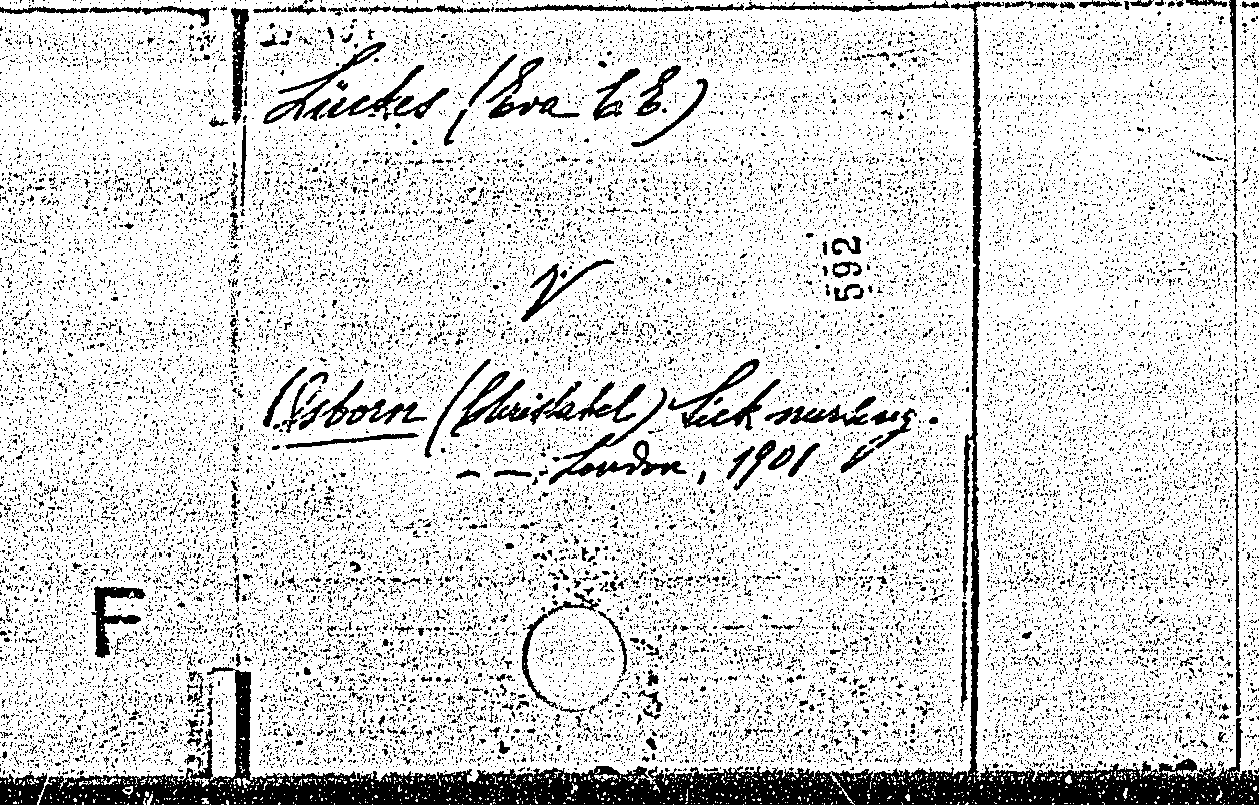 Lückes (Eva C. E.)
V
592
Osborn (Christabel) Sick nursing.
— — London, 1901
F